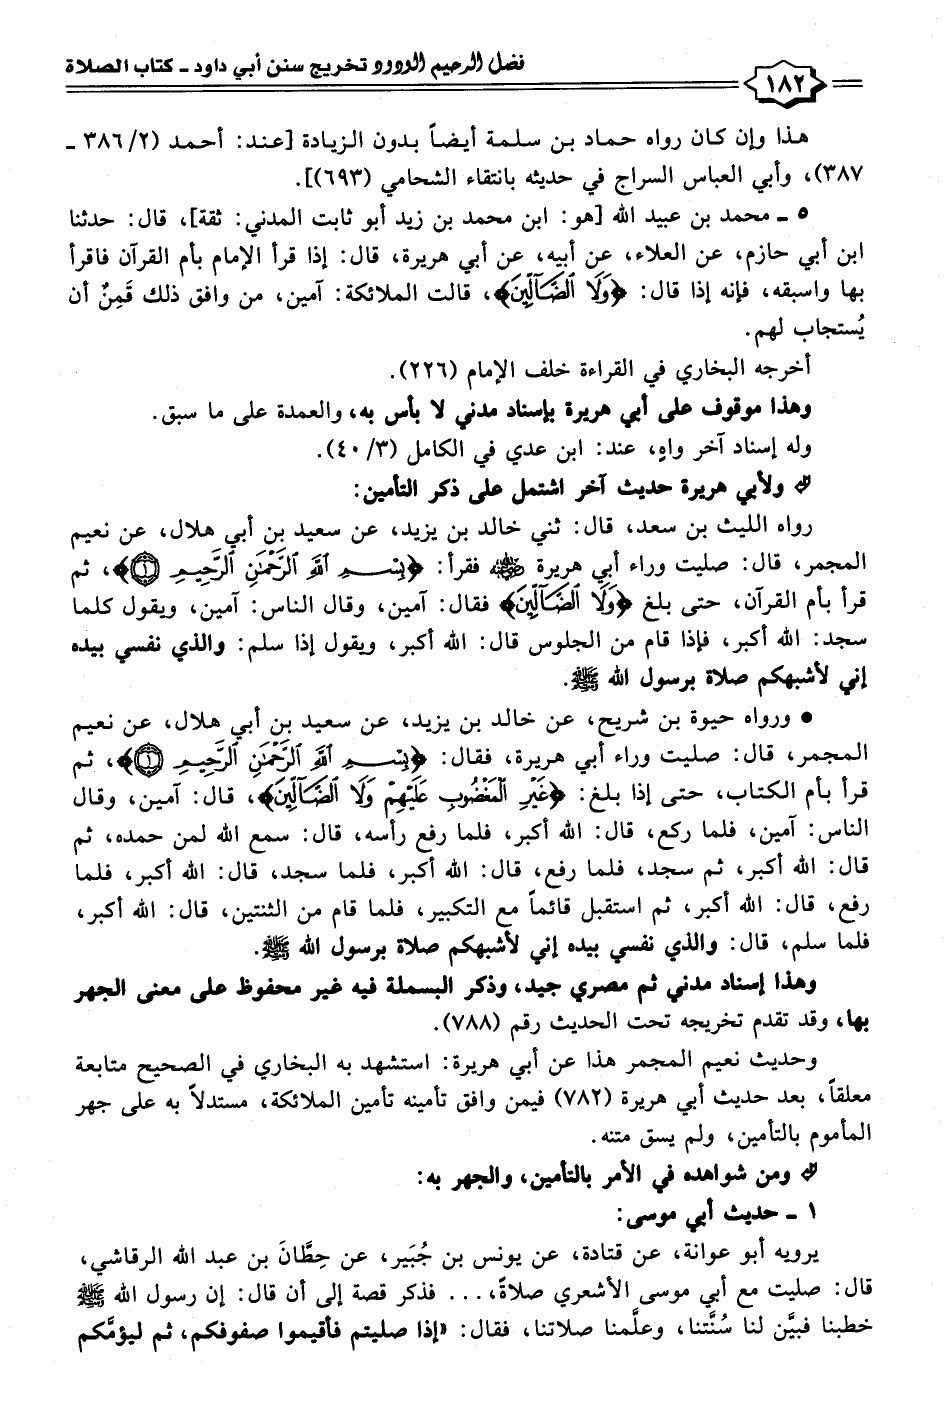 فضل الرحيم الودود تخريج سنن أبي داود - كتاب الصلاة
١٨٢
هذا وإن كان رواه حماد بن سلمة أيضاً بدون الزيادة [عند: أحمد (٣٨٦/٢ -
٣٨٧)، وأبي العباس السراج في حديثه بانتقاء الشحامي (٦٩٣)].
٥ - محمد بن عبيد الله [هو: ابن محمد بن زيد أبو ثابت المدني: ثقة]، قال: حدثنا
ابن أبي حازم، عن العلاء، عن أبيه، عن أبي هريرة، قال: إذا قرأ الإمام بأم القرآن فاقرأ
بها واسبقه، فإنه إذا قال: ﴿وَلَا ٱلضَّآلِّينَ﴾، قالت الملائكة: آمين، من وافق ذلك قَمِنٌ أن
يُستجاب لهم.
أخرجه البخاري في القراءة خلف الإمام (٢٢٦).
وهذا موقوف على أبي هريرة بإسناد مدني لا بأس به، والعمدة على ما سبق.
وله إسناد آخر واهٍ، عند: ابن عدي في الكامل (٤٠/٣).
ولأبي هريرة حديث آخر اشتمل على ذكر التأمين:
رواه الليث بن سعد، قال: ثني خالد بن يزيد، عن سعيد بن أبي هلال، عن نعيم
المجمر، قال: صليت وراء أبي هريرة رضي الله عنه فقرأ: ﴿بِسْمِ ٱللَّهِ ٱلرَّحْمَٰنِ ٱلرَّحِيمِ ۝١﴾، ثم
قرأ بأم القرآن، حتى بلغ ﴿وَلَا ٱلضَّآلِّينَ﴾ فقال: آمين، وقال الناس: آمين، ويقول كلما
سجد: الله أكبر، فإذا قام من الجلوس قال: الله أكبر، ويقول إذا سلم: والذي نفسي بيده
إني لأشبهكم صلاة برسول الله ﷺ.
• ورواه حيوة بن شريح، عن خالد بن يزيد، عن سعيد بن أبي هلال، عن نعيم
المجمر، قال: صليت وراء أبي هريرة، فقال: ﴿بِسْمِ ٱللَّهِ ٱلرَّحْمَٰنِ ٱلرَّحِيمِ ۝١﴾، ثم
قرأ بأم الكتاب، حتى إذا بلغ: ﴿غَيْرِ ٱلْمَغْضُوبِ عَلَيْهِمْ وَلَا ٱلضَّآلِّينَ﴾، قال: آمين، وقال
الناس: آمين، فلما ركع، قال: الله أكبر، فلما رفع رأسه، قال: سمع الله لمن حمده، ثم
قال: الله أكبر، ثم سجد، فلما رفع، قال: الله أكبر، فلما سجد، قال: الله أكبر، فلما
رفع، قال: الله أكبر، ثم استقبل قائماً مع التكبير، فلما قام من الثنتين، قال: الله أكبر،
فلما سلم، قال: والذي نفسي بيده إني لأشبهكم صلاة برسول الله ﷺ.
وهذا إسناد مدني ثم مصري جيد، وذكر البسملة فيه غير محفوظ على معنى الجهر
بها، وقد تقدم تخريجه تحت الحديث رقم (٧٨٨).
وحديث نعيم المجمر هذا عن أبي هريرة: استشهد به البخاري في الصحيح متابعة
معلقاً، بعد حديث أبي هريرة (٧٨٢) فيمن وافق تأمينه تأمين الملائكة، مستدلاً به على جهر
المأموم بالتأمين، ولم يسق متنه.
ومن شواهده في الأمر بالتأمين، والجهر به:
١ - حديث أبي موسى:
يرويه أبو عوانة، عن قتادة، عن يونس بن جُبَير، عن حِطَّانَ بن عبد الله الرقاشي،
قال: صليت مع أبي موسى الأشعري صلاةً، ... فذكر قصة إلى أن قال: إن رسول الله ﷺ
خطبنا فبيَّن لنا سُنَّتنا، وعلَّمنا صلاتنا، فقال: «إذا صليتم فأقيموا صفوفكم، ثم ليؤمَّكم